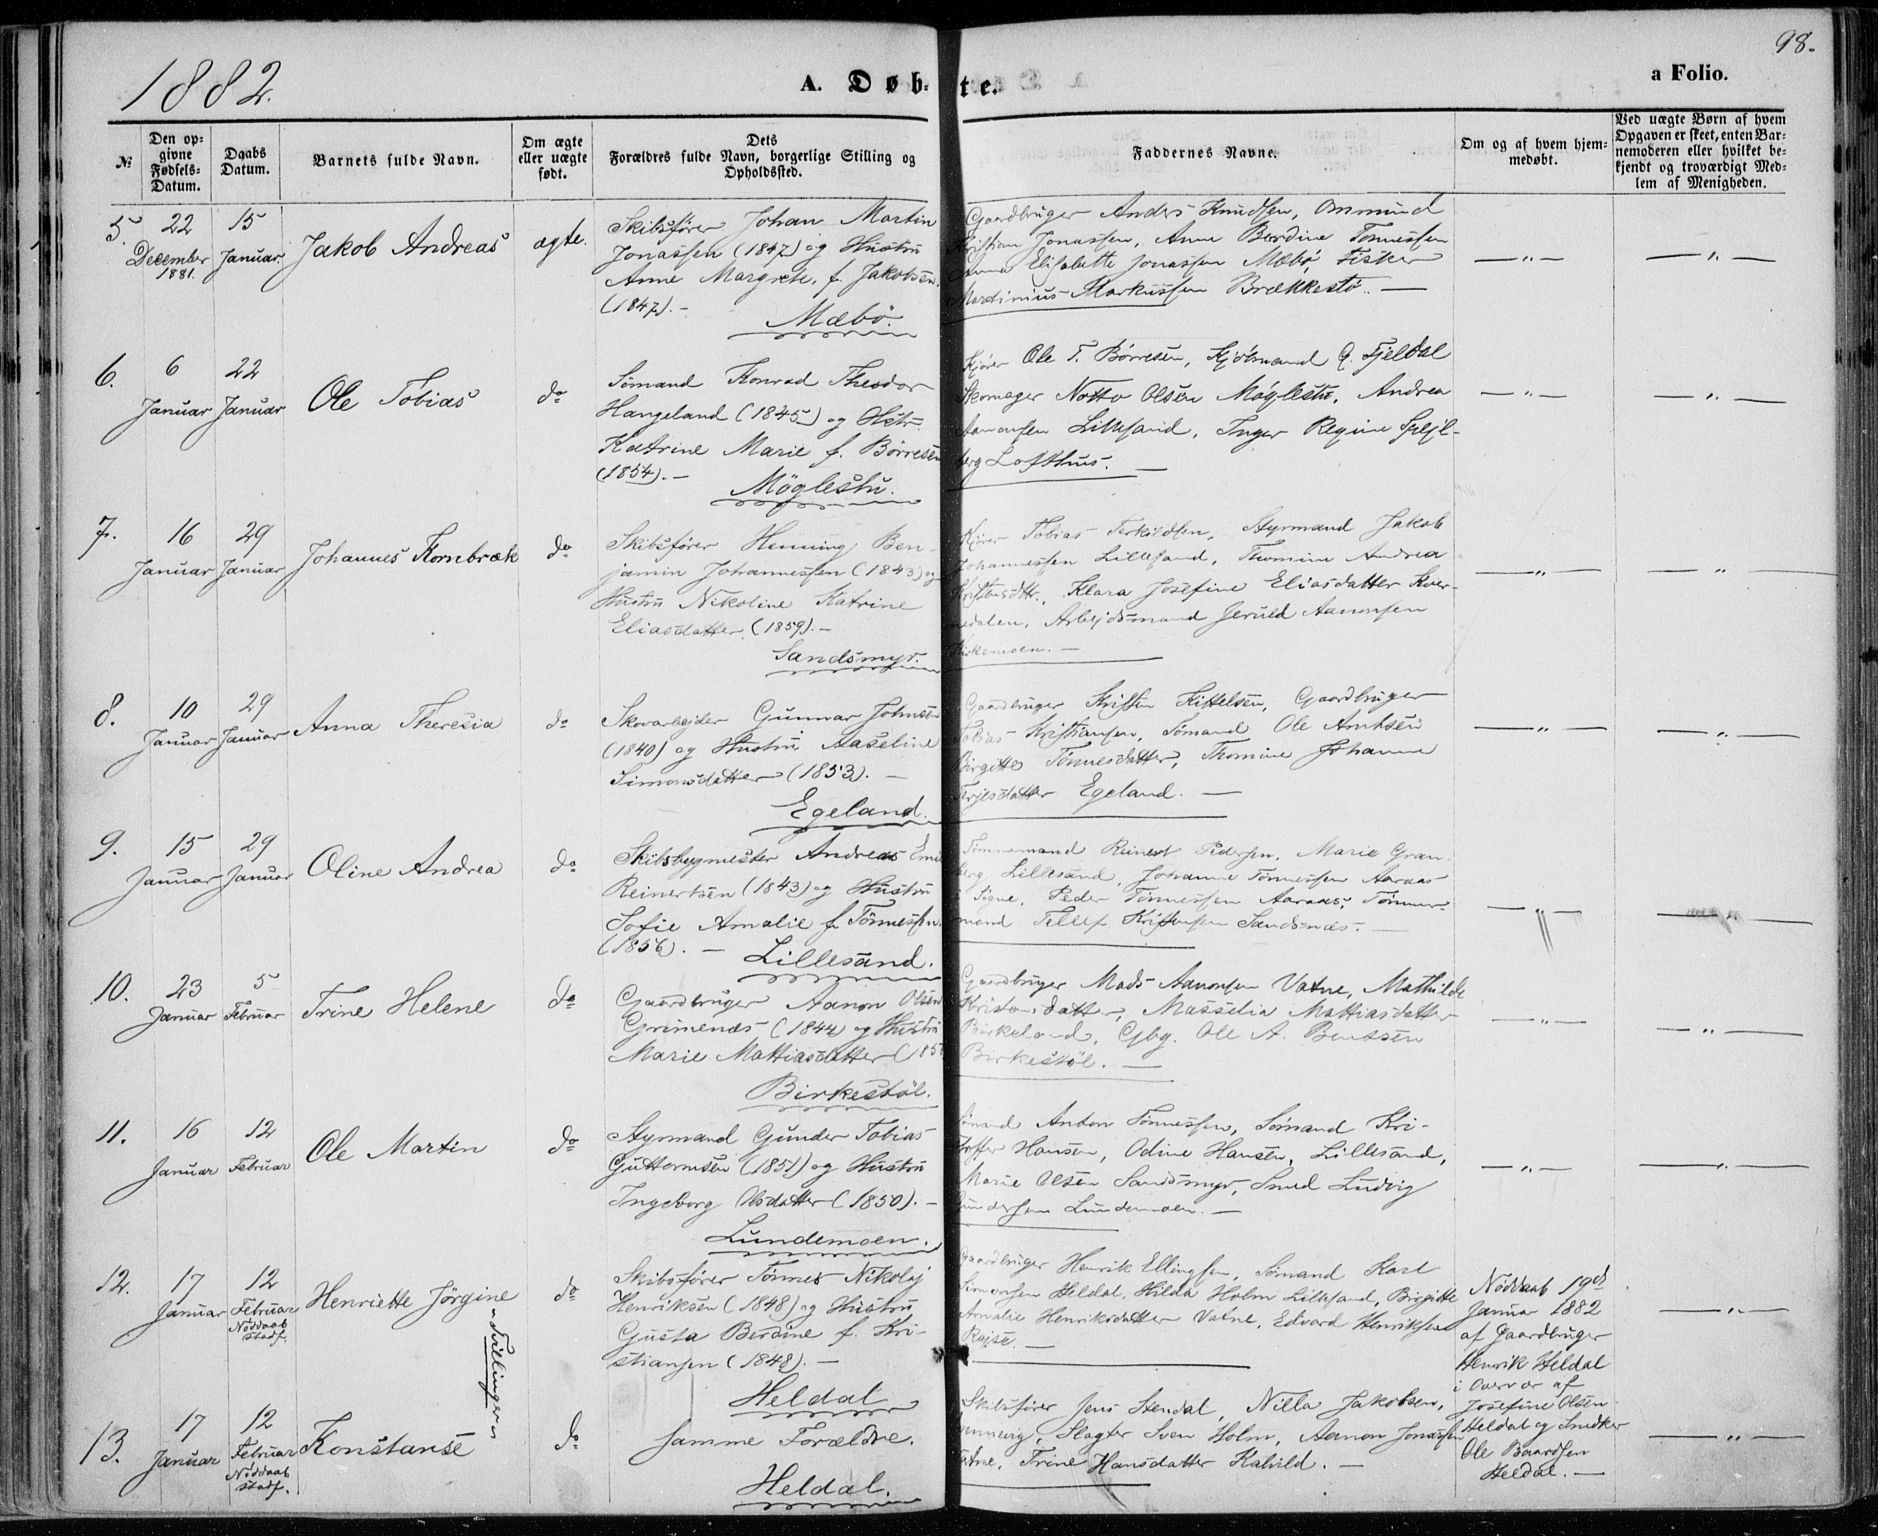 1882.
A. Døb-
te.
98.
a Folio.
№
Den op-
givne
Fødsels-
Datum.
Daabs
Datum.
Barnets fulde Navn.
Om ægte
eller uægte
født.
Dets
Forældres fulde Navn, borgerlige Stilling og
Opholdssted.
Faddernes Navne.
Om og af hvem hjem-
medøbt.
Ved uægte Børn af hvem
Opgaven er skeet, enten Bar-
nemoderen eller hvilket be-
kjendt og troværdigt Med-
lem af Menigheden.
5.
22
December
1881.
15
Januar
Jakob Andreas
ægte.
Skibsfører Johan Martin
Jonassen (1847) og Hustru
Anne Margrete, f. Jakobsen.
(1847). —
Mæbø.
Gaardbruger Anders Knudsen, Ommund
Kristian Jonassen, Anne Berdine Tønnessen
Anna Elisabette Jonassen Mæbø, Fisker
Martinius Markussen Brækkestø. —
— „ —
— „ —
6.
6
Januar
22
Januar
Ole Tobias
do
Sømand Konrad Theodor
Hangeland (1845) og Hstr.
Katrine Marie f. Børresen
(1854). —
Møglestu.
Ole T. Børresen, G. Fjeldal
Skomager Notto Olsen Møglestu, Andrea
Aanonsen Lillesand, Inger Regine Spejl-
berg Lofthus. —
— „ —
— „ —
7.
16
Januar
29
Januar
Johannes Kornbræk
do
Skibsfører Henning Ben-
jamin Johannessen (1843) og
Hustru Nikoline Katrine
Eliasdatter (1859). —
Sandsmyr.
Tobias Terkildsen, Styrmand Jakob
Johannessen Lillesand, Thomine Andrea
Klara Josefine Eliasdatter Kver-
nedalen, Arbejdsmand Jeruld Aanonsen
Kirkemoen. —
— „ —
— „ —
8.
10
Januar
29
Januar
Anna Theresia
do
Skovarbejder Gunnar Johnsen
(1840) og Hustru Aaseline
Simonsdatter (1853). —
Egeland.
Gaardbruger Kristen Kittelsen, Gaardbruger
Tobias Kristiansen, Sømand Ole Arntsen
Birgitte Tønnesdatter, Thomine Johanne
Terjesdatter Egeland. —
— „ —
— „ —
9.
15
Januar
29
Januar
Oline Andrea
do
Skibsbygmester Andreas Emil
Reinertsen (1843) og Hustru
Sofie Amalie f. Tønnessen.
(1856). —
Lillesand.
Tømmermand Reinert Pedersen, Marie Gran-
berg Lillesand, Johanne Tønnessen Aaraas
i Søgne, Peder Tønnessen Aaraas, Tømmer-
mand Tellef Kristensen Sandsnæs. —
— „ —
— „ —
10.
23
Januar
5
Februar
Trine Helene
do
Gaardbruger Aanon Olsen
Grimenæs (1844 og Hustru
Marie Mattiasdatter (185
Birkestøl.
Gaardbruger Mads Aanonsen Vatne, Mathilde
Kristensdatter, Masselia Mattiasdatter
Birkeland, Gbg. Ole A. Bentsen
Birkestøl. —
— „ —
— „ —
11.
16
Januar
12
Februar
Ole Martin
do
Styrmand Gunder Tobias
Guttormsen (1851) og Hustru
Ingeborg Olsdatter (1850). —
Lundemoen.
Sømand Anton Tønnessen, Sømand Kri-
stoffer Hansen, Odine Hansen, Lillesand,
Marie Olsen Sandsmyr, Smed Ludvig
Gundersen Lundemoen. —
— „ —
— „ —
12.
17
Januar
12
Februar
Nøddaab
stadf.
Henriette Jørgine
Tvillinger
do
Skibsfører Tønnes Nikolaj
Henriksen (1848) og Hustru
Gusta Berdine f. Kri-
stiansen (1848). —
Heldal
Gaardbruger Henrik Ellingsen, Sømand Karl
Simonsen Heldal, Hilda Holm Lillesand, Birgitte
Amalie Henriksdatter Vatne, Edvard Henriksen
Rejse. —
Nøddaab 19de
Januar 1882
af Gaardbruger
Henrik Heldal
i Overvær af
Josefine Olsen
Heldal og Snedker
Ole Baardsen
Heldal. —
— „ —
13.
17
Januar
12
Februar
Nøddaab
stadf.
Konstanse
do
Samme Forældre.
Heldal.
Skibsfører Jens Stendal, Nilla Jakobsen,
Slagter Sven Holm, Aanon Jonassen
Vatne, Trine Hansdatter Kalvild. —
— „ —